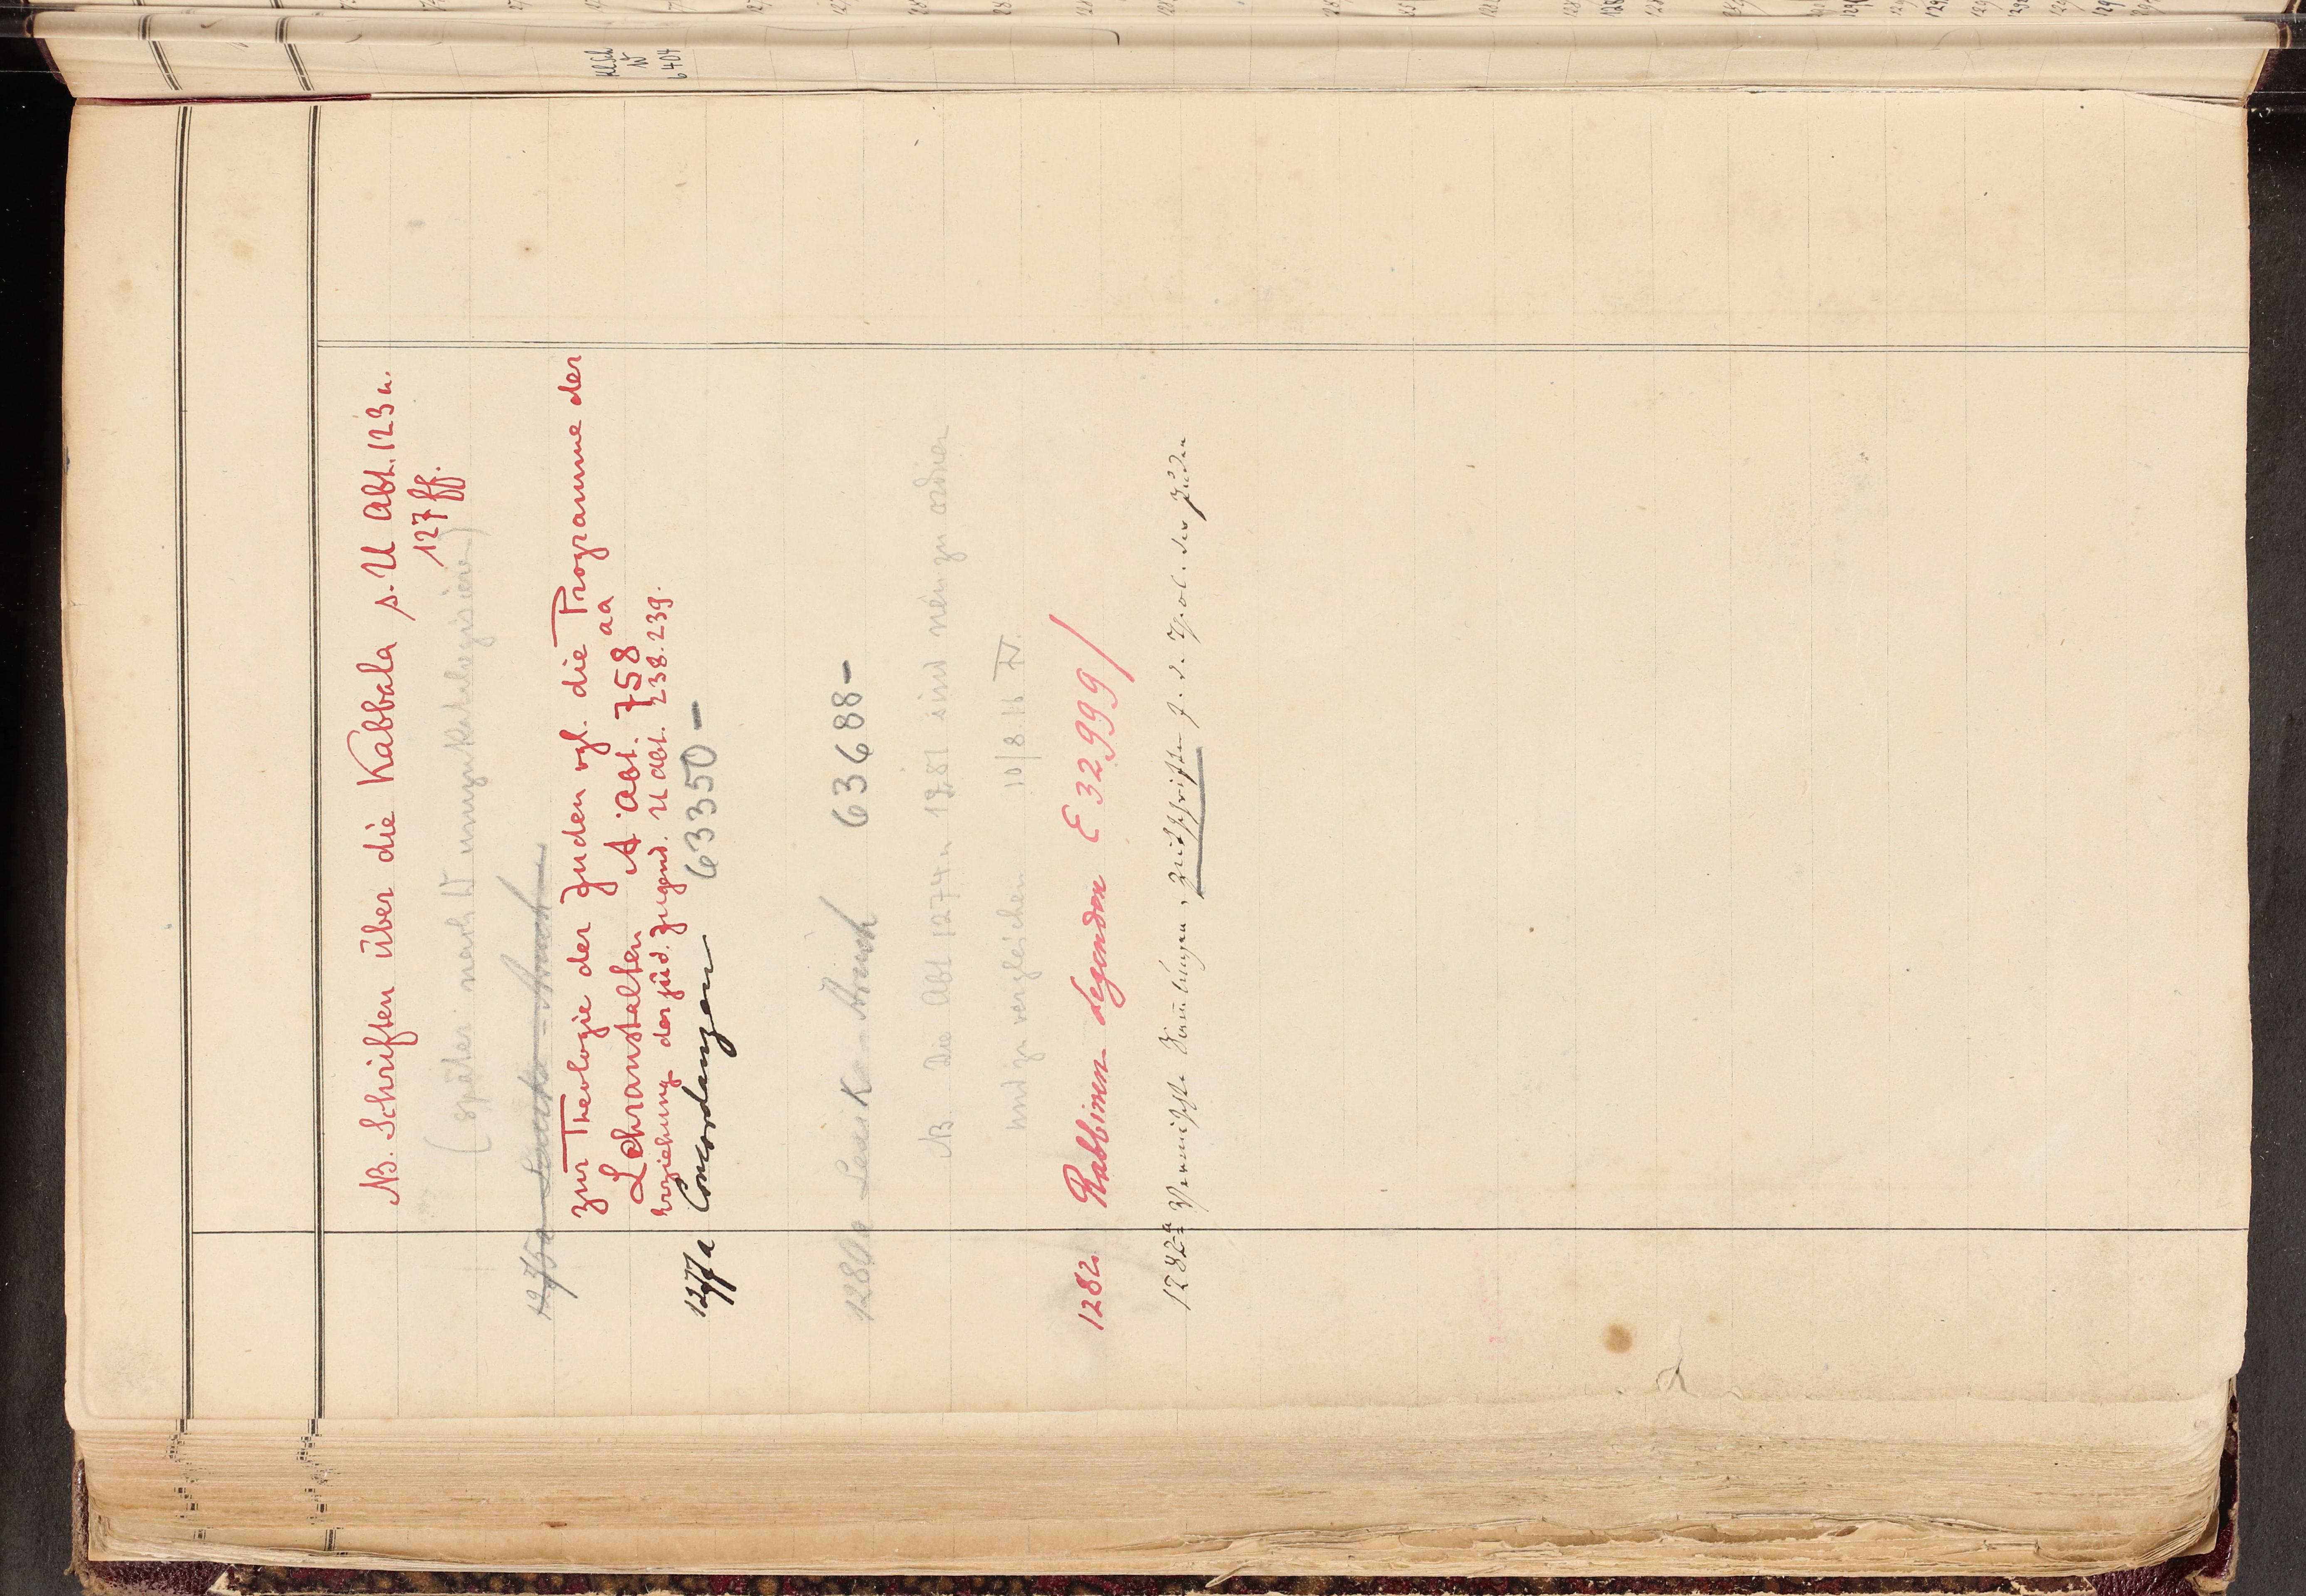 NB. Schriften über die Kabbala s. U Abt. 123 u.
127 ff.
(später nach W umzukatalogisieren)
zur Theologie der Juden vgl. die Programme der
Lehranstalten A Abt. 758 aa
Erziehung der jüd. Jugend. U Abt. 238. 239.
1277a Concordanzen 63350 –
1280a 63688 –
NB. Die Abt 1274 u 1281 sind neu zu ordnen
und zu vergleichen 10/8.16
1282 Rabbinen-Legenden E 32999/
1282a Vermischte Sammlungen, Zeitschriften z. d. Theol. der Juden
W
6404